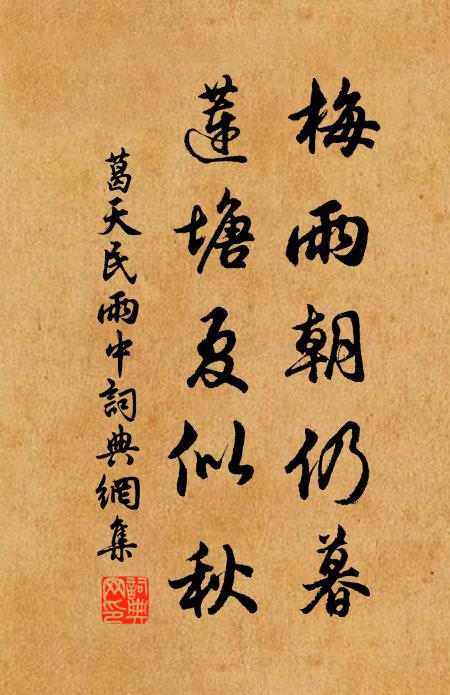 梅雨朝仍暮
蓮塘夏似秋
葛天民雨中詞典網集
詞典網印